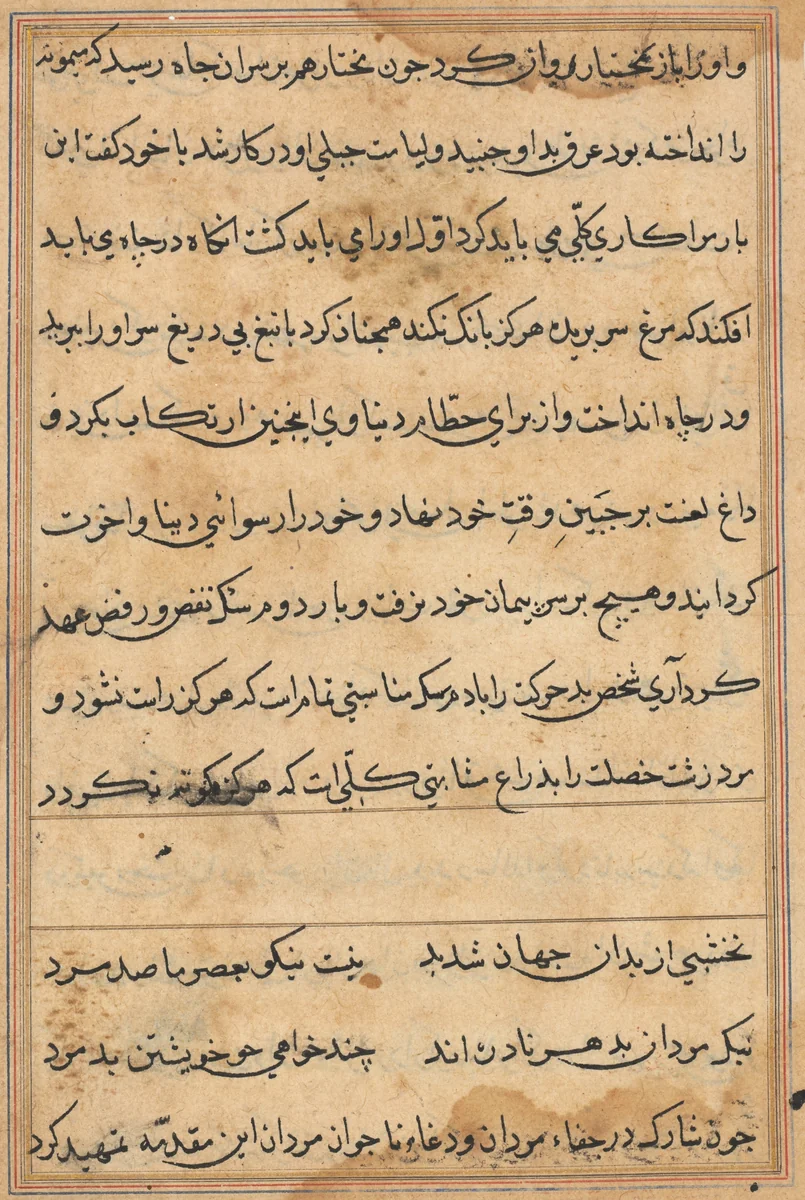 و او را باز بختیاری روان کرد جون بختار هم بر سران جاه رسید که میمونه
را انداخته بود عرق بد او جنبید و لیامت جبلی او در کار شد با خود کفت این
بار مرا کاری کلّی می باید کرد اوّل او را می باید کشت انکاه در چاه می باید
افکند که مرغ سر بریده هرکز بانک نکند همچنان کرد با تیغ بی دریغ سر او را ببرید
و در چاه انداخت و از برای حطّام دنیاوی اینجنین ارتکاب بکرد و
داغ لعنت بر جَبَینِ وقتِ خود نهاد و خود را رسوائی دینا و اخرت
کردانید و هیچ بر سر پیمان خود نرفت و بار دوم نقض و رفض عهد
کرد آری شخص بد حرکت را با دم سک مناسبتی تمام است که هرکز راست نشود و
مرد زشت خصلت را بذراع مشابهتی کلّی است که هرکز نکردد
نخشبی از بدان جهان شد بد نیست نیکو بعصر ما صد مرد
نیک مردان بد هر نادره اند چند خواهی جو خویشتن بد مرد
جون شارک در جفاء مردان و دغاء نا جوان مردان این مقدّمه تمهید کرد